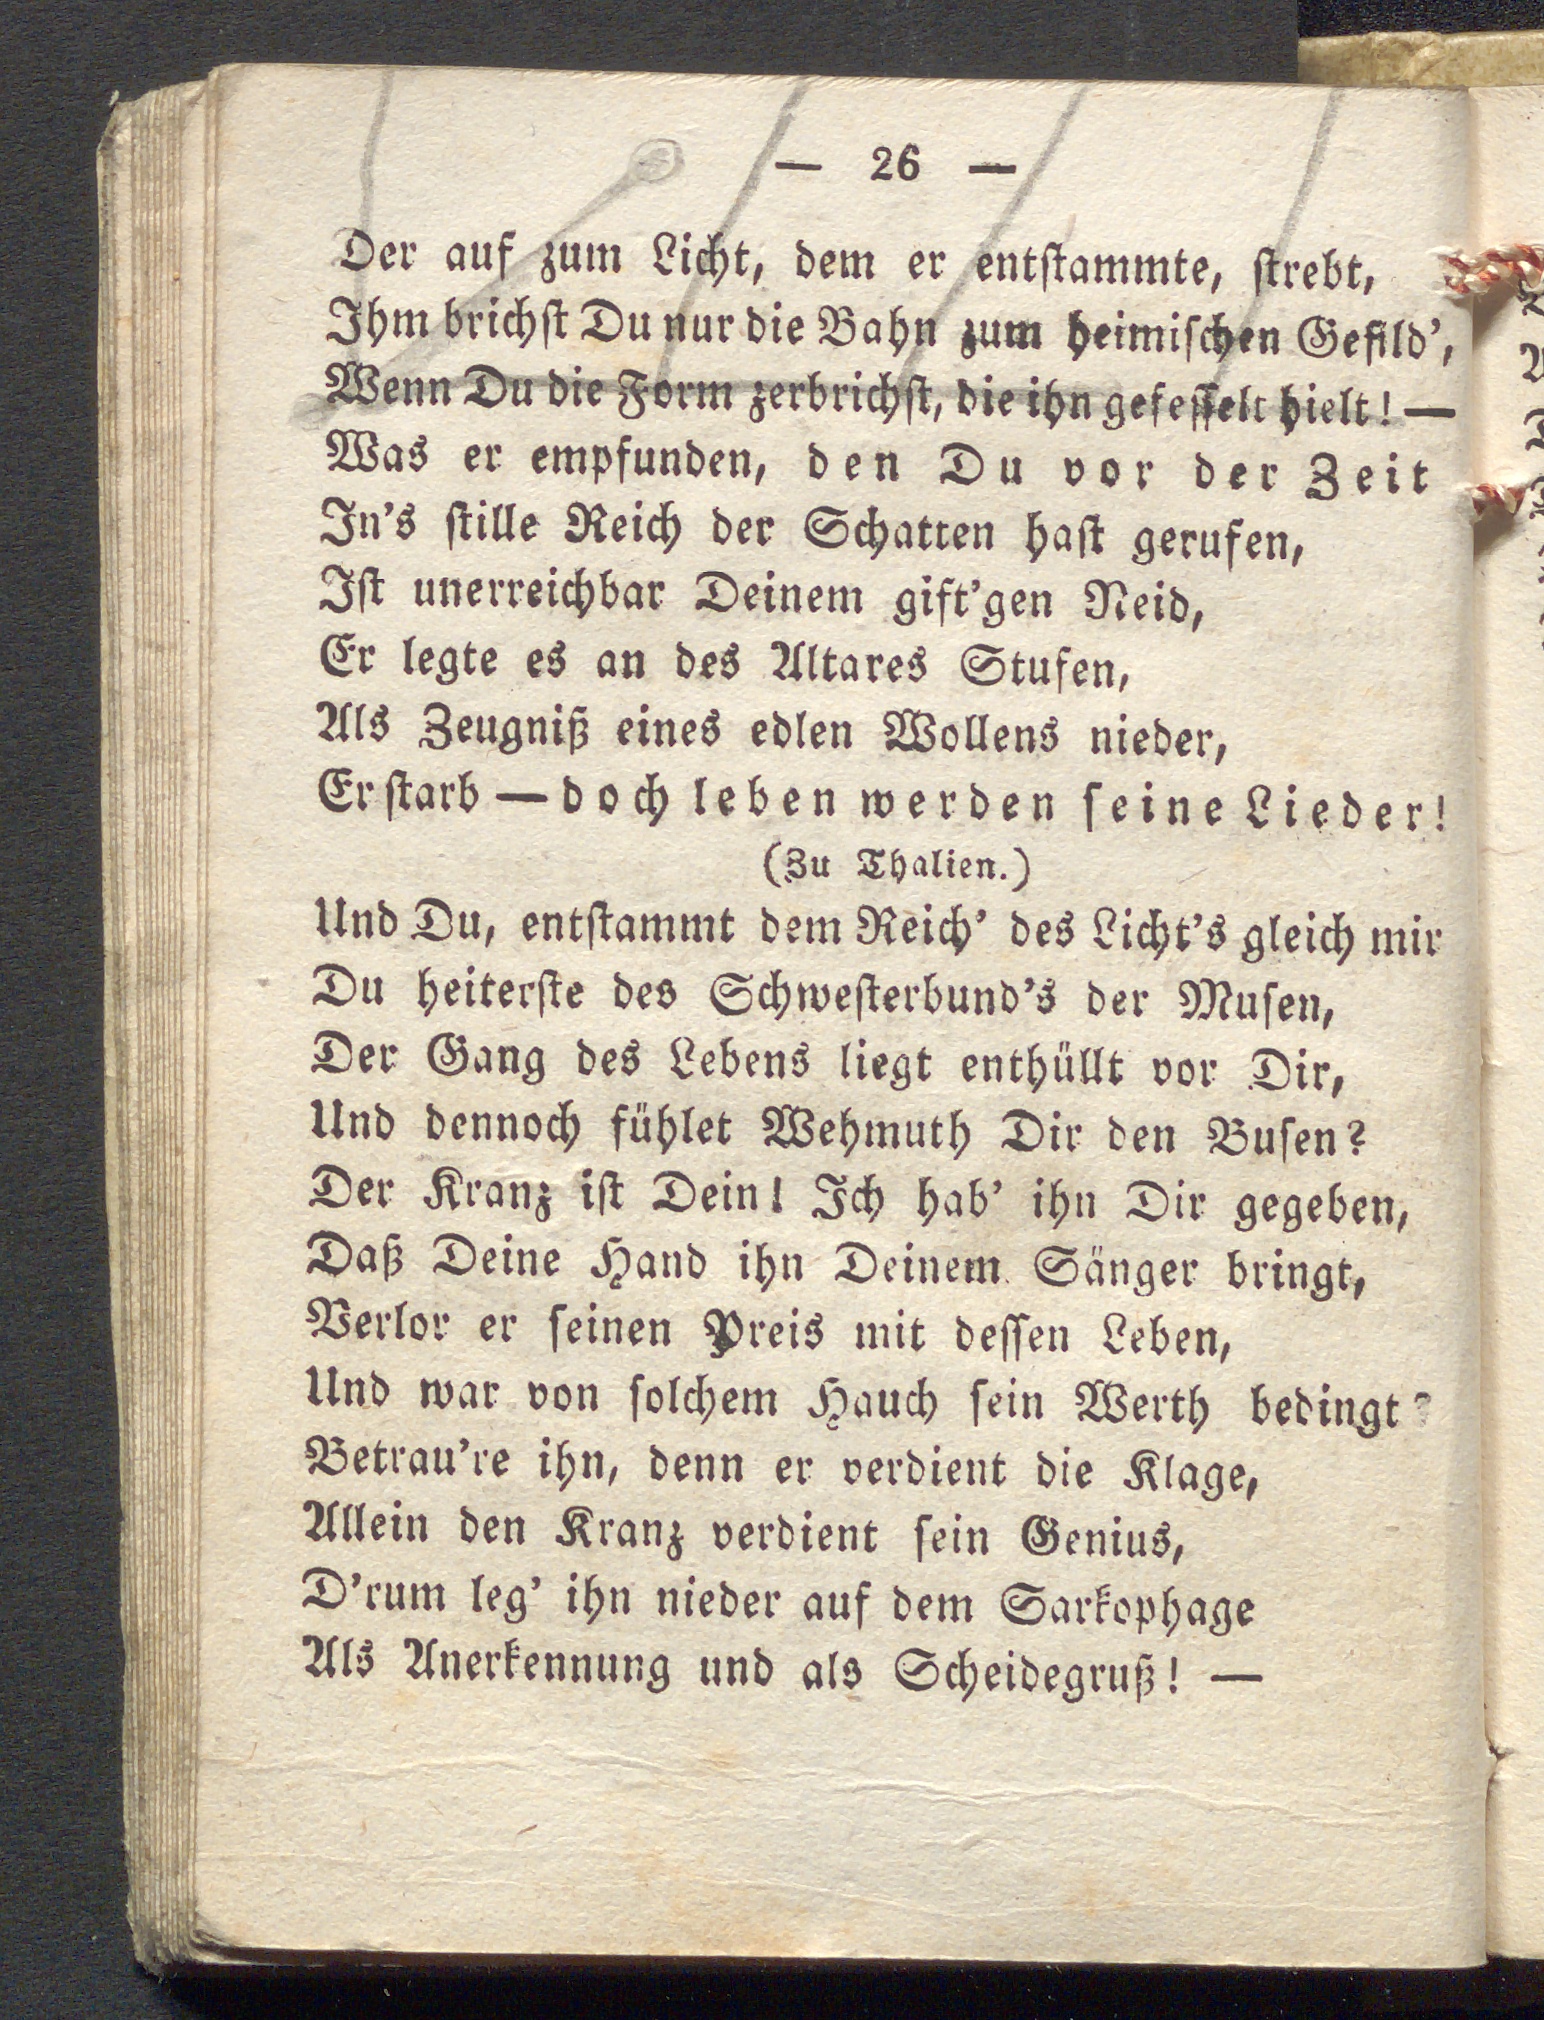 — 26 —
Der auf zum Licht, dem er entſtammte, ſtrebt,
Ihm brichſt Du nur die Bahn zum heimiſchen Gefild’,
Wenn Du die Form zerbrichſt, die ihn gefeſſelt hielt! —
Was er empfunden, den Du vor der Zeit
In’s ſtille Reich der Schatten haſt gerufen,
Iſt unerreichbar Deinem gift’gen Neid,
Er legte es an des Altares Stufen,
Als Zeugniß eines edlen Wollens nieder,
Er ſtarb — doch leben werden ſeine Lieder!
(Zu Thalien.)
Und Du, entſtammt dem Reich’ des Licht’s gleich mir
Du heiterſte des Schweſterbund’s der Muſen,
Der Gang des Lebens liegt enthüllt vor Dir,
Und dennoch fühlet Wehmuth Dir den Buſen?
Der Kranz iſt Dein! Ich hab’ ihn Dir gegeben,
Daß Deine Hand ihn Deinem Sänger bringt,
Verlor er ſeinen Preis mit deſſen Leben,
Und war von ſolchem Hauch ſein Werth bedingt?
Betrau’re ihn, denn er verdient die Klage,
Allein den Kranz verdient ſein Genius,
D’rum leg’ ihn nieder auf dem Sarkophage
Als Anerkennung und als Scheidegruß! —